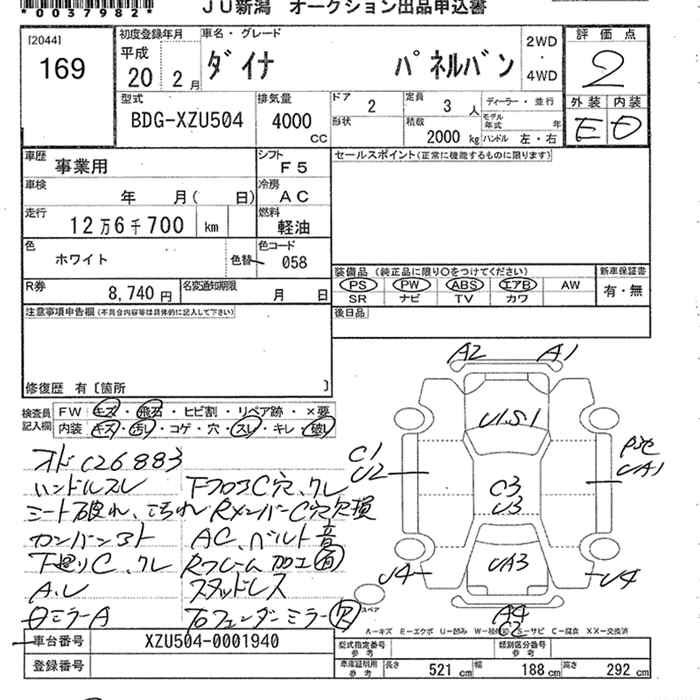 * 0 0 3 7 9 8 2 *
JU新潟 オークション出品申込書
[2044]
169
初度登録年月
平成
20年 2月
車名・グレード
ダイナ パネルバン
2WD
・
4WD
評価点
2
型式
BDG-XZU504
排気量
4000 CC
ドア 2
定員 3人
ディーラー・並行
形状
積載 2000 kg
モデル年式 年
ハンドル 左・右
外装 内装
E D
車歴 事業用
シフト F5
車検 年 月( 日)
冷房 AC
走行 12万6千700 km
燃料 軽油
色 ホワイト 色替
色コード 058
R券 8,740円
名変通知期限 月 日
セールスポイント(正常に機能するものに限ります)
装備品(純正品に限り○をつけてください)
新車保証書
PS PW ABS エアB AW 有・無
SR ナビ TV カワ
後日品
注意事項申告欄(不具合内容等は具体的に記入して下さい)
修復歴 有〔箇所 〕
検査員記入欄
FW キズ・飛石・ヒビ割・リペア跡・×要
内装 キズ・汚れ・コゲ・穴・スレ・キレ・破れ
オドC26.883
ハンドルスレ 下フロアC穴、クレ
シート破れ、汚れ RメンバーC穴欠損
カンバンヨト AC、ベルト音
下廻りC、クレ Rフレーム加工有
A.レ スタッドレス
白ミラーA フェンダーミラー
A2 A1
U1.S1
C1
U2
C3
U3
UA1
UA3
U4 U4
A4
C2
スペア
A－キズ E－エクボ U－凹み S－サビ C－腐食 XX－交換済
車台番号 XZU504-0001940
登録番号
型式指定番号 参考
類別区分番号 参考
車庫証明用 参考
長さ 521 cm 幅 188 cm 高さ 292 cm